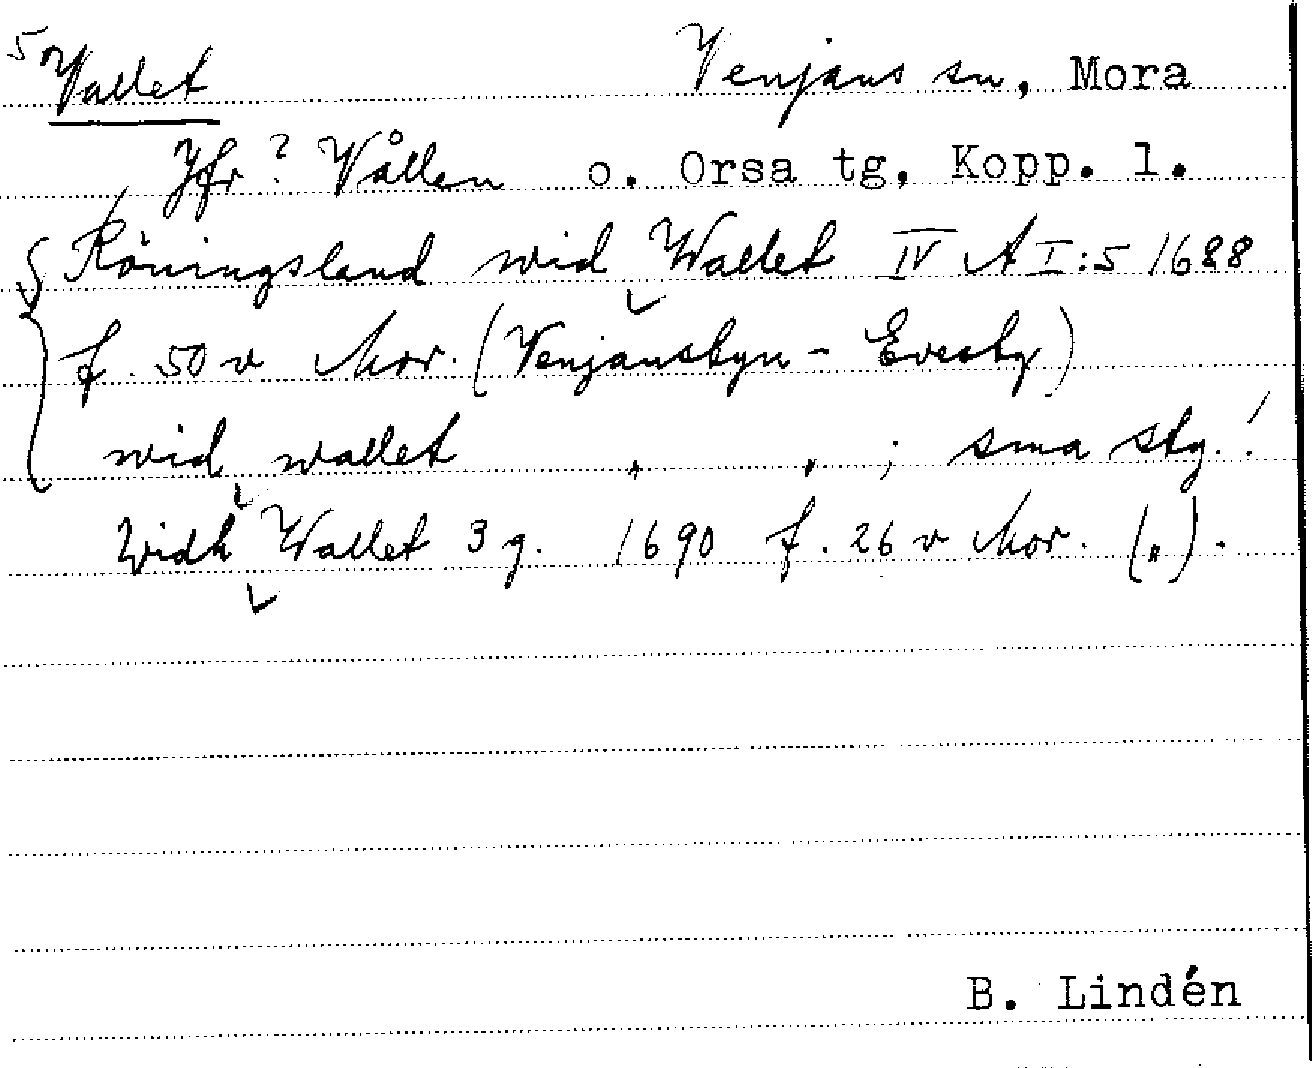 5 Vallet Venjans sn, Mora
Jfr ? Vållen o. Orsa tg, Kopp. l.
Röningsland wid Wallet IV A I:5 1688
f. 50 v Mor. (Venjansbyn - Evesby)
wid wallet " " ; sma stg.!
widh Wallet 3 g. 1690 f. 26 v Mor. (").
B. Lindén